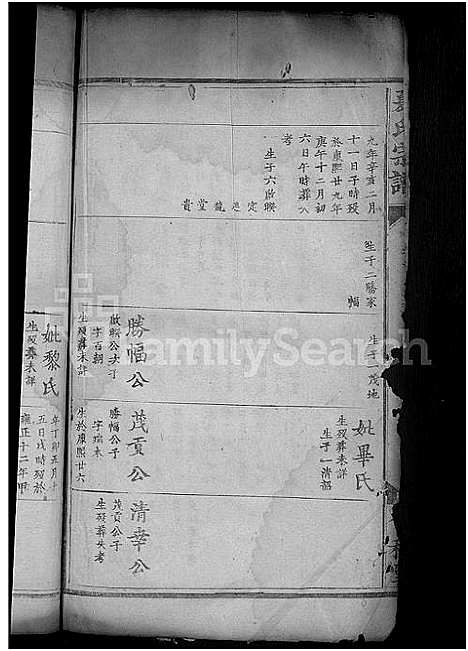 氏宗譜
九年辛亥二月
十一日子時歿
於康熙廿九年
庚午十二月初
六日午時葬八
考
生子六啟睽
定 龍 堂 貴
生子二勝家
幅
生子一茂地
勝幅公
啟睽公次子
字百朝
生歿葬未詳
妣畢氏
生歿葬未詳
生子一清韶
茂貢公
勝幅公子
字瑞未
生於康熙廿六
清幸公
茂貢公子
生歿葬失考
妣黎氏
生歿葬未詳
年丁卯五月十
五日戌時歿於
雍正十二年甲
FamilySearch